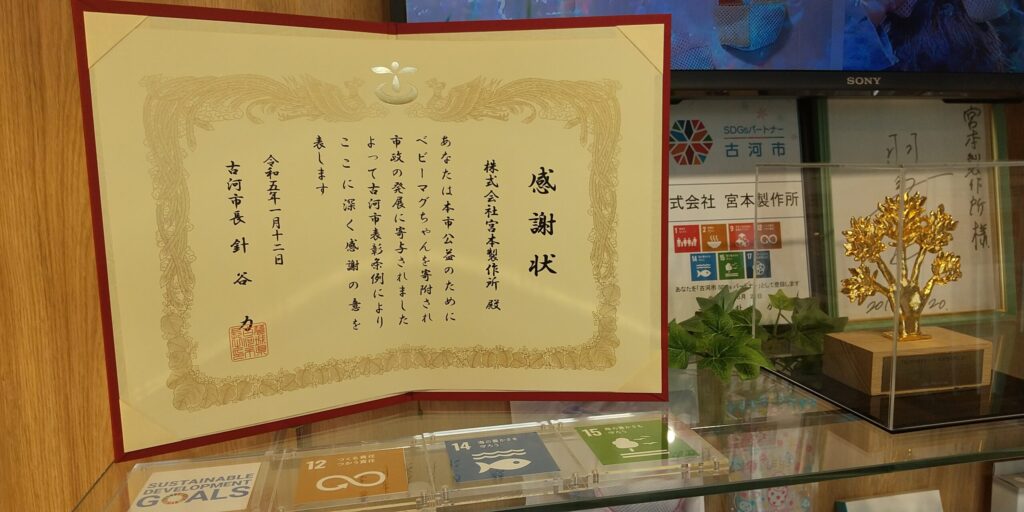 感謝状
株式会社宮本製作所 殿
あなたは本市公益のために
ベビーマグちゃんを寄附され
市政の発展に寄与されました
よって古河市表彰条例により
ここに深く感謝の意を
表します
令和五年一月十二日
古河市長 針谷 力
SONY
SDGsパートナー
古河市
式会社 宮本製作所
あなたを「古河市 SDGsパートナー」として登録します
宮本製作所 様
SUSTAINABLE
DEVELOPMENT
GOALS
12 つくる責任
つかう責任
14 海の豊かさを
守ろう
15 陸の豊かさも
守ろう